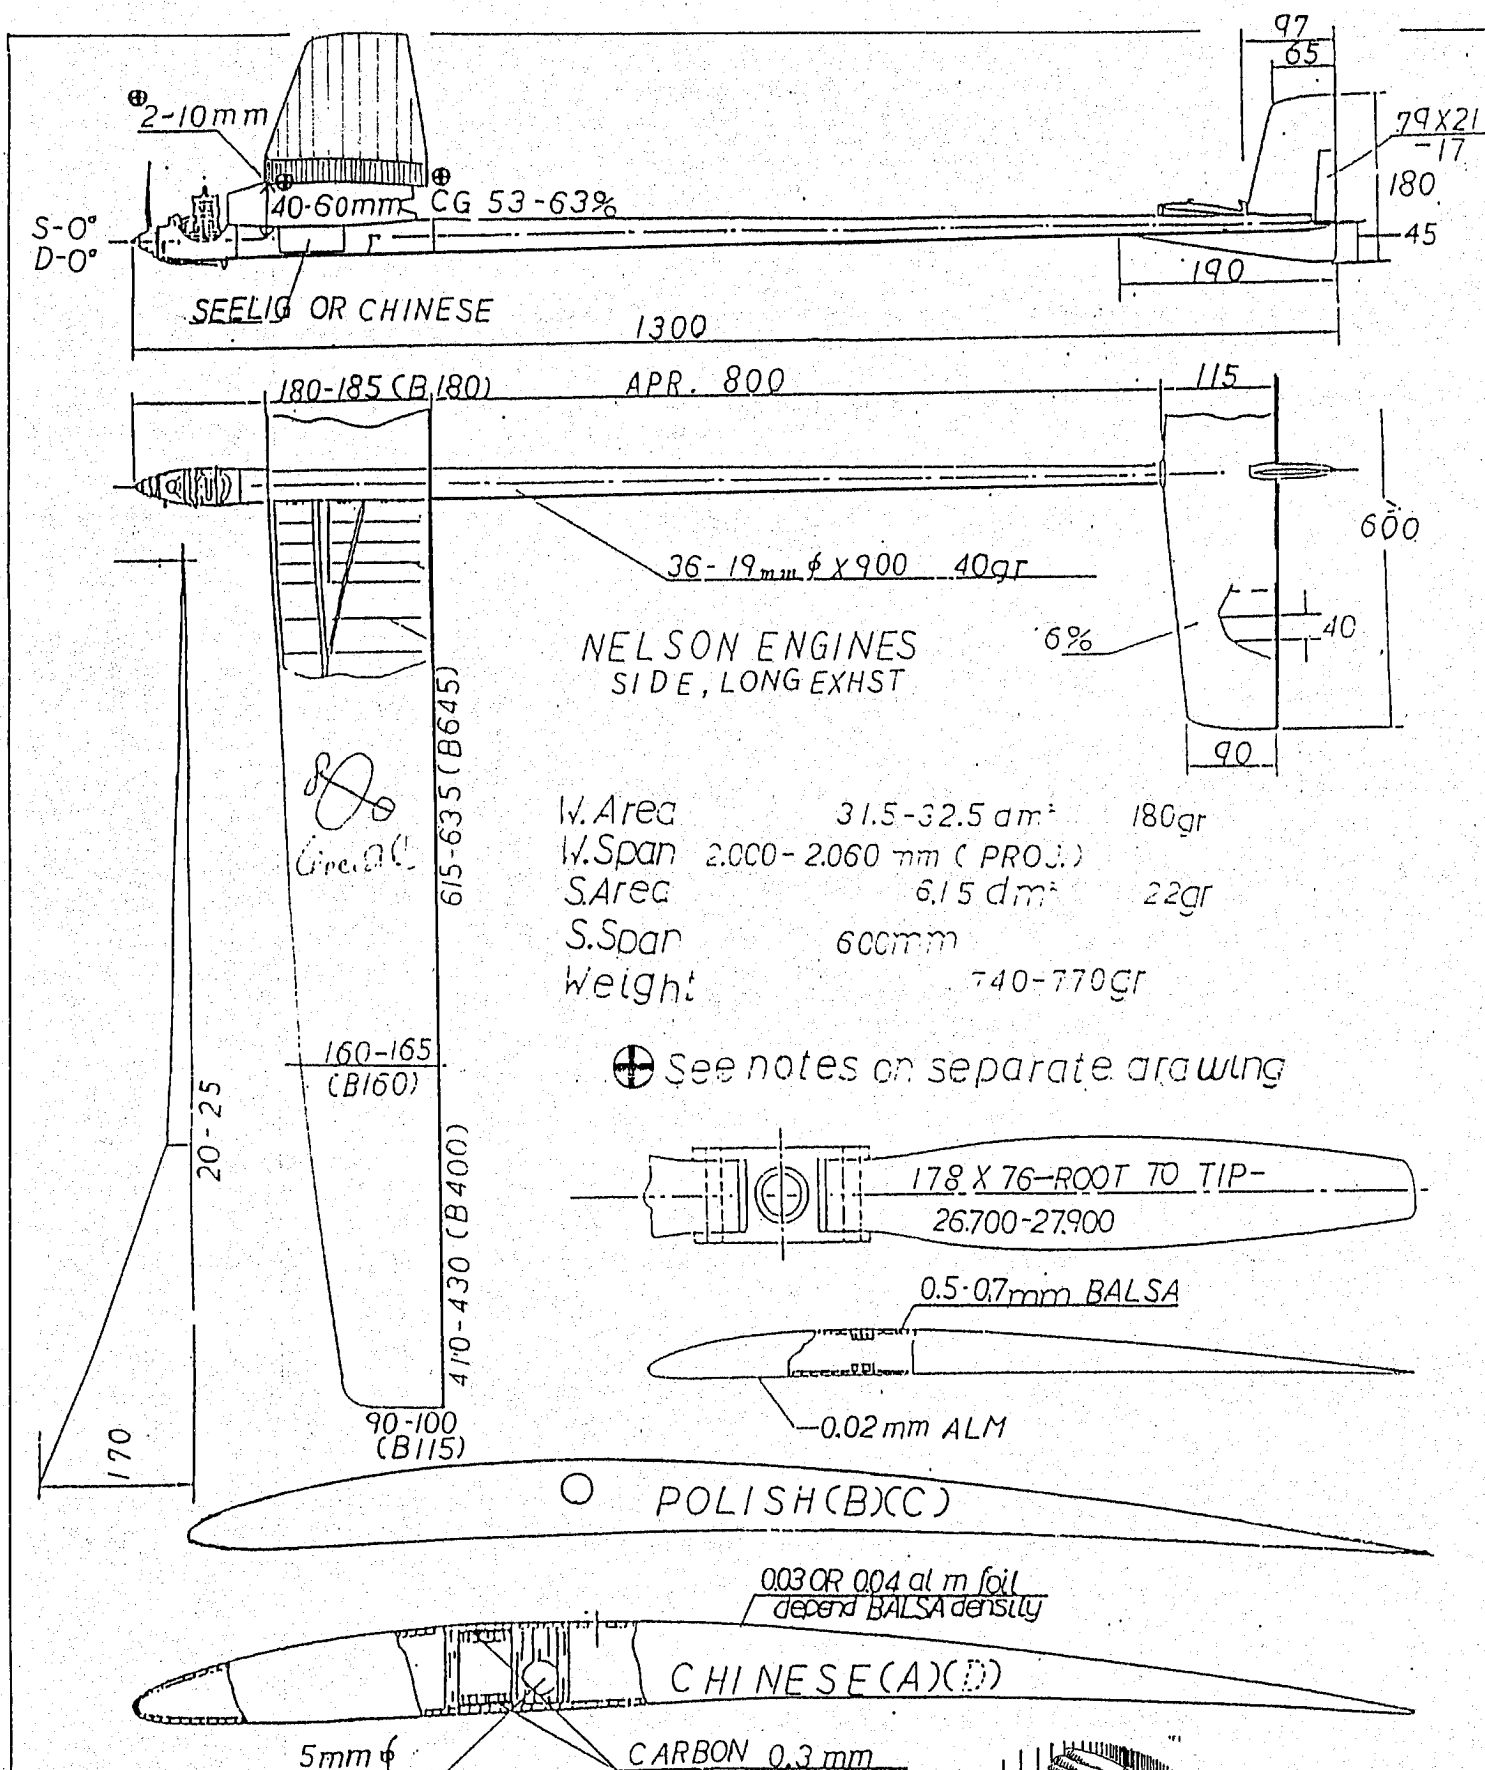 97
65
2-10mm
79X21
-17
180
40-60mm CG 53-63%
S-0°
D-0°
45
190
SEELIG OR CHINESE
1300
180-185(B.180) APR. 800 115
600
36-19mm ϕ X900 40gr
NELSON ENGINES
SIDE, LONG EXHST
6%
40
90
615-635(B645)
W.Area 31.5-32.5 dm² 180gr
W.Span 2.000-2.060 mm ( PROJ.)
S.Area 6.15 dm² 22gr
S.Span 600mm
Weight 740-770gr
160-165
(B160)
⊕ See notes on separate drawing
20-25
410-430 (B400)
178 X 76-ROOT TO TIP-
26.700-27.900
0.5-0.7mm BALSA
0.02mm ALM
90-100
(B115)
170
POLISH(B)(C)
0.03 OR 0.04 al m foil
depend BALSA density
CHINESE(A)(D)
5mm ϕ
CARBON 0.3 mm